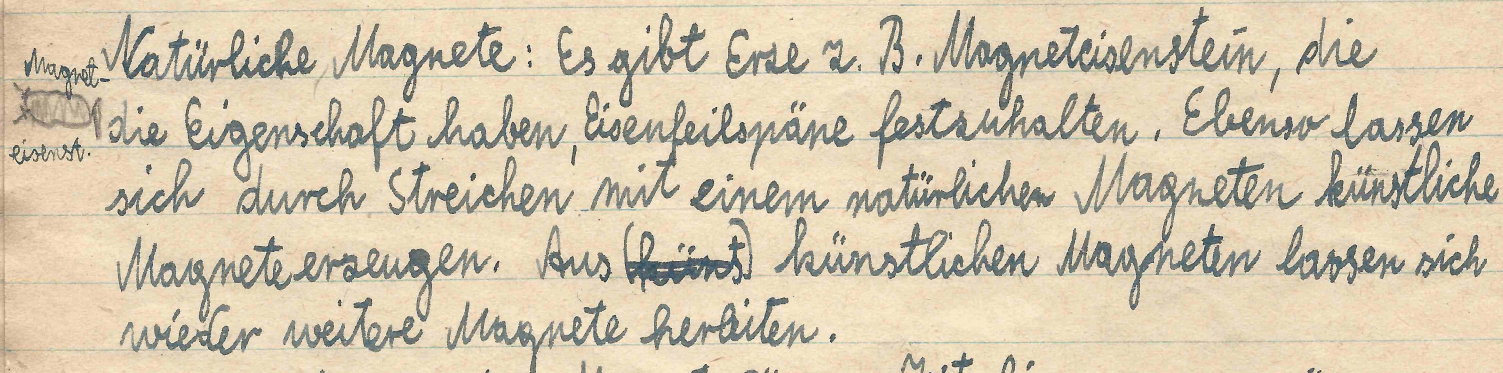 Magnet-
eisenst.
Natürliche Magnete: Es gibt Erze z. B. Magneteisenstein, die
die Eigenschaft haben, Eisenfeilspäne festzuhalten. Ebenso lassen
sich durch Streichen mit einem natürlichen Magneten künstliche
Magnete erzeugen. Aus (künst) künstlichen Magneten lassen sich
wieder weitere Magnete herleiten.